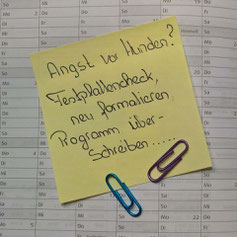 Angst vor Hunden?
Festplattencheck,
neu formatieren,
Programm über-
schreiben.....